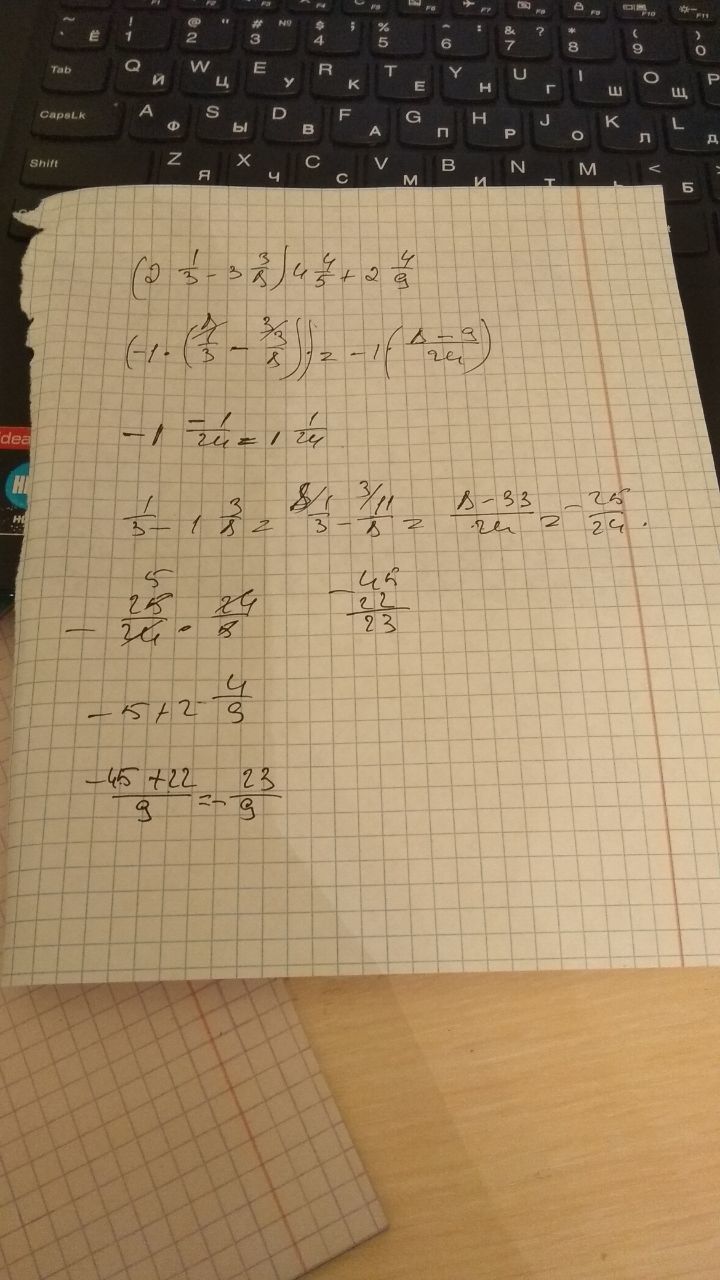 F7 F8 F9 F10 F11
~ ` Ё ! 1 @ " 2 # № 3 $ ; 4 % 5 ^ : 6 & ? 7 * 8 ( 9 ) 0
Tab Q Й W Ц E У R К T Е Y Н U Г I Ш O Щ P
CapsLk A Ф S Ы D В F А G П H Р J О K Л L Д
Shift Z Я X Ч C С V М B И N Т M < Б
(2 1/3 - 3 3/8) 4 4/5 + 2 4/9
(-1 · (8/1/3 - 3/3/8)) = -1 (8-9/24)
-1 -1/24 = 1 1/24
1/3 - 1 3/8 = 8/1/3 - 3/11/8 = 8-33/24 = -25/24.
5
- 25/24 · 24/5
-45
22
23
-5+2 4/9
-45+22/9 = - 23/9
idea